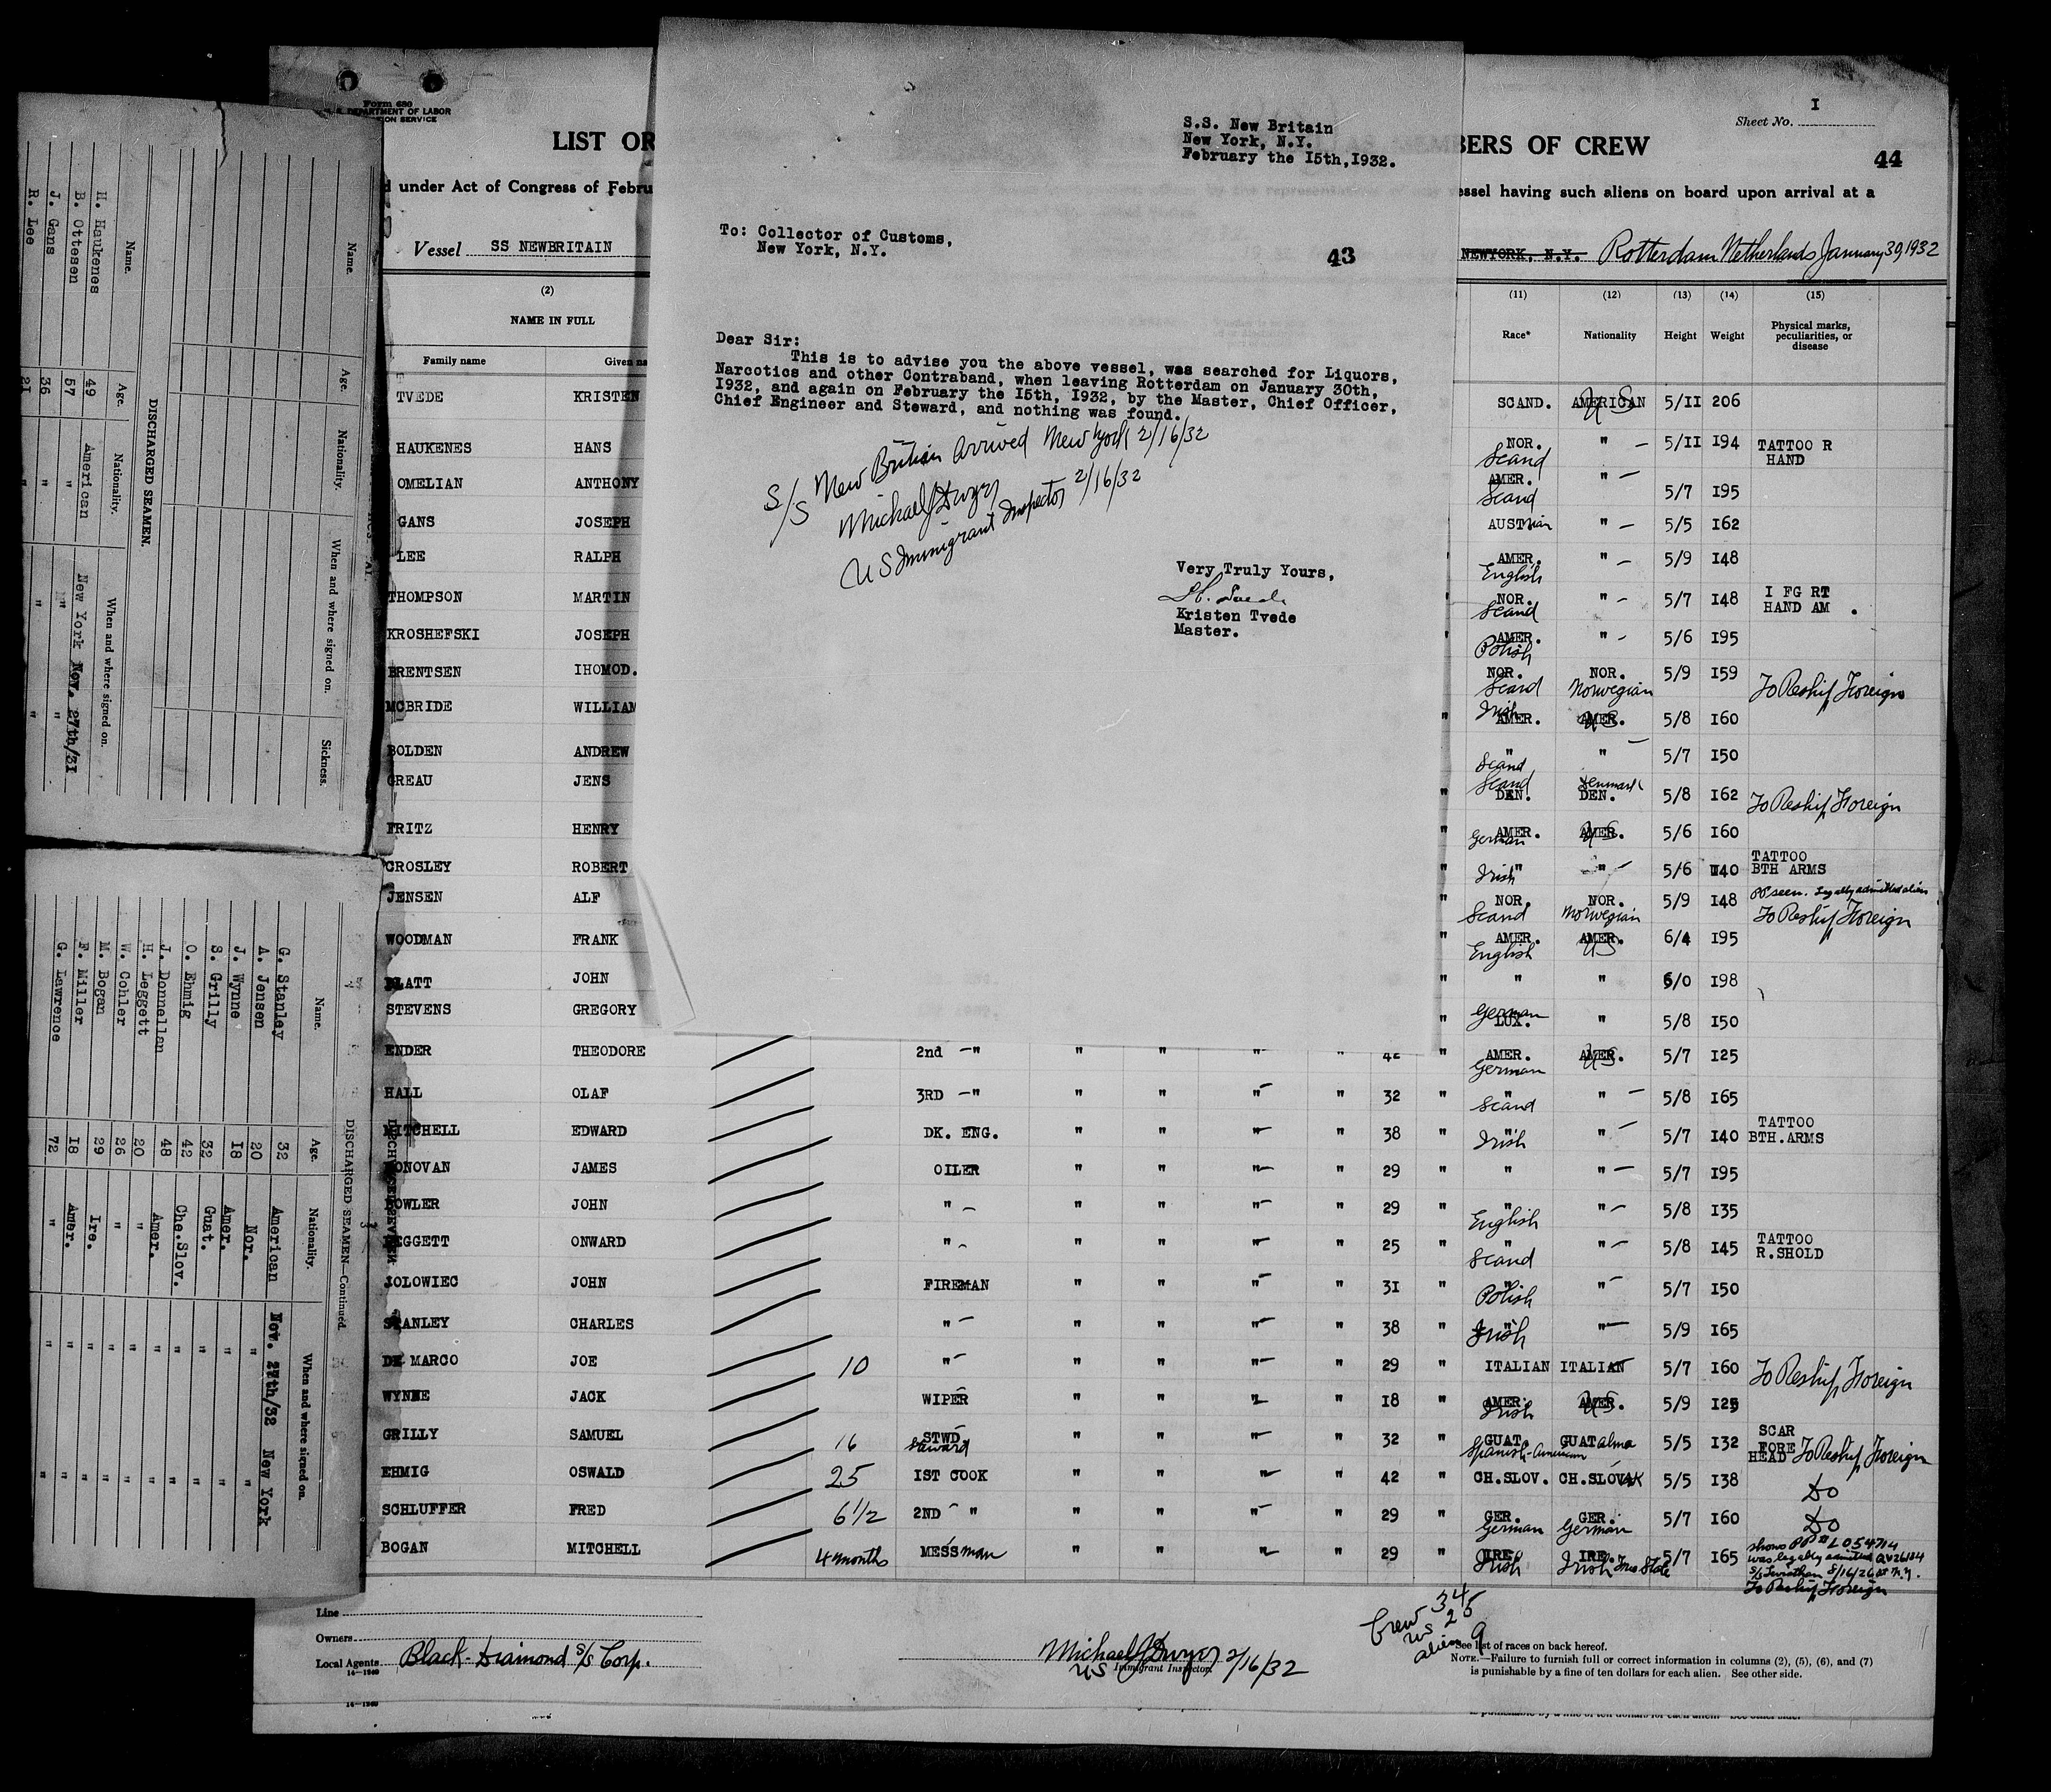 Form 680
DEPARTMENT OF LABOR
I
Sheet No.
44
LIST OR
BERS OF CREW
under Act of Congress of Febru
essel having such aliens on board upon arrival at a
Vessel SS NEWBRITAIN
NEWYORK, N.Y. Rotterdam Netherlands January 30, 1932
S.S. New Britain
New York, N.Y.
February the I5th,I932.
To: Collector of Customs,
New York, N.Y.
43
Dear Sir:
This is to advise you the above vessel, was searched for Liquors,
Narcotics and other Contraband, when leaving Rotterdam on January 30th,
I932, and again on February the I5th, I932, by the Master, Chief Officer,
Chief Engineer and Steward, and nothing was found.
S/S New Britian Arrived New York 2/16/32
Michael J Dwyer
US Immigrant Inspector 2/16/32
Very Truly Yours,
Kristen Tvede
Master.
(2) (11) (12) (13) (14) (15)
NAME IN FULL Race* Nationality Height Weight Physical marks, peculiarities, or disease
Family name Given na
TVEDE KRISTEN SCAND. AMERICAN US 5/II 206
HAUKENES HANS NOR. Scand " 5/II I94 TATTOO R HAND
OMELIAN ANTHONY AMER. Scand " 5/7 I95
GANS JOSEPH AUSTrian " 5/5 I62
LEE RALPH AMER. English " 5/9 I48
THOMPSON MARTIN NOR. Scand " 5/7 I48 I FG RT HAND AM .
KROSHEFSKI JOSEPH AMER. Polish " 5/6 I95
BRENTSEN IHOMOD. NOR. Scand NOR. Norwegian 5/9 I59 To Reship Foreign
MCBRIDE WILLIAM " Irish AMER. AMER. US 5/8 I60
BOLDEN ANDREW " Scand " 5/7 I50
GREAU JENS " Scand DEN. Denmark DEN. 5/8 I62 To Reship Foreign
FRITZ HENRY " AMER. German AMER. US 5/6 I60
CROSLEY ROBERT " Irish " " 5/6 I40 TATTOO BTH ARMS
JENSEN ALF " NOR. Scand NOR. Norwegian 5/9 I48 PP seen. Legally admitted alien To Reship Foreign
WOODMAN FRANK " AMER. English AMER. US 6/4 I95
BLATT JOHN " " " 6/0 I98
STEVENS GREGORY " German LUX. " 5/8 I50
ENDER THEODORE 2nd " " " " " 42 " AMER. German AMER. US 5/7 I25
HALL OLAF 3RD " " " " " 32 " " Scand " 5/8 I65
MITCHELL EDWARD DK. ENG. " " " " 38 " " Irish " 5/7 I40 TATTOO BTH.ARMS
DONOVAN JAMES OILER " " " " 29 " " " 5/7 I95
BOWLER JOHN " " " " " 29 " " English " 5/8 I35
LEGGETT ONWARD " " " " " 25 " " Scand " 5/8 I45 TATTOO R.SHOLD
JOLOWIEC JOHN FIREMAN " " " " 3I " " Polish " 5/7 I50
STANLEY CHARLES " " " " " 38 " " Irish " 5/9 I65
DE MARCO JOE 10 " " " " " 29 " ITALIAN ITALIAN 5/7 I60 To Reship Foreign
WYNNE JACK WIPER " " " " I8 " AMER. Irish AMER. US 5/9 I25
GRILLY SAMUEL 16 STWD. Steward " " " " 32 " GUAT. Spanish-American GUATalma 5/5 I32 SCAR FORE HEAD To Reship Foreign
EHMIG OSWALD 25 IST COOK " " " " 42 " CH.SLOV. CH.SLOVAK 5/5 I38 Do
SCHLUFFER FRED 6 1/2 2ND " " " " " 29 " GER. German GER. German 5/7 I60 Do
BOGAN MITCHELL 4 months MESSman " " " " 29 " IRE. Irish IRE. Irish Free State 5/7 I65 shows PP # L054714 was legally admitted QV26184 S/S Leviathan 8/16/26 at N.Y. To Reship Foreign
Line
Owners
Local Agents Black-Diamond S/S Corp.
14—1949
Michael J Dwyer 2/16/32
US Immigrant Inspector.
Crew 34
US 25
alien 9
See list of races on back hereof.
NOTE.—Failure to furnish full or correct information in columns (2), (5), (6), and (7)
is punishable by a fine of ten dollars for each alien. See other side.
DISCHARGED SEAMEN.
Name. Age. Nationality. When and where signed on. Sickness.
Name. Age. Nationality. When and where signed on.
H. Haukenes 49 American New York Nov. 27th/3I
B. Ottesen 57 " " "
J. Gans 36 " "
R. Lee 2I " "
DISCHARGED SEAMEN—Continued.
Name. Age. Nationality. When and where signed on.
G. Stanley 32 American Nov. 27th/32 New York
A. Jensen 20 Nor. " "
J. Wynne I8 Amer. " "
S. Grilly 32 Guat. " "
O. Ehmig 42 Che.Slov. " "
J. Donnellan 48 Amer. " "
H. Leggett 20 " " "
W. Cohler 26 " " "
M. Bogan 29 Ire. " "
F. Miller I8 Amer. " "
G. Lawrence 72 " " "